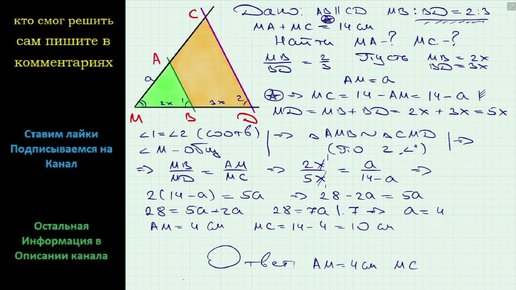 кто смог решить
сам пишите в
комментариях
Ставим лайки
Подписываемся на
Канал
Остальная
Информация в
Описании канала
C
A
a
M
2x
1
B
3x
2
D
Дано: AB || CD MB : BD = 2 : 3
MA + MC = 14 см
Найти MA - ? MC - ?
MB/BD = 2/3 Пусть MB = 2x
BD = 3x
AM = a
⇒ MC = 14 - AM = 14 - a
MD = MB + BD = 2x + 3x = 5x
∠1 = ∠2 (соотв) | ⇒ △AMB ~ △CMD
∠M - общ | (по 2 ∠)
⇒ MB/MD = AM/MC ⇒ 2x/5x = a/(14 - a)
2(14 - a) = 5a ⇒ 28 - 2a = 5a
28 = 5a + 2a 28 = 7a | : 7 ⇒ a = 4
AM = 4 см MC = 14 - 4 = 10 см
Ответ AM = 4 см MC